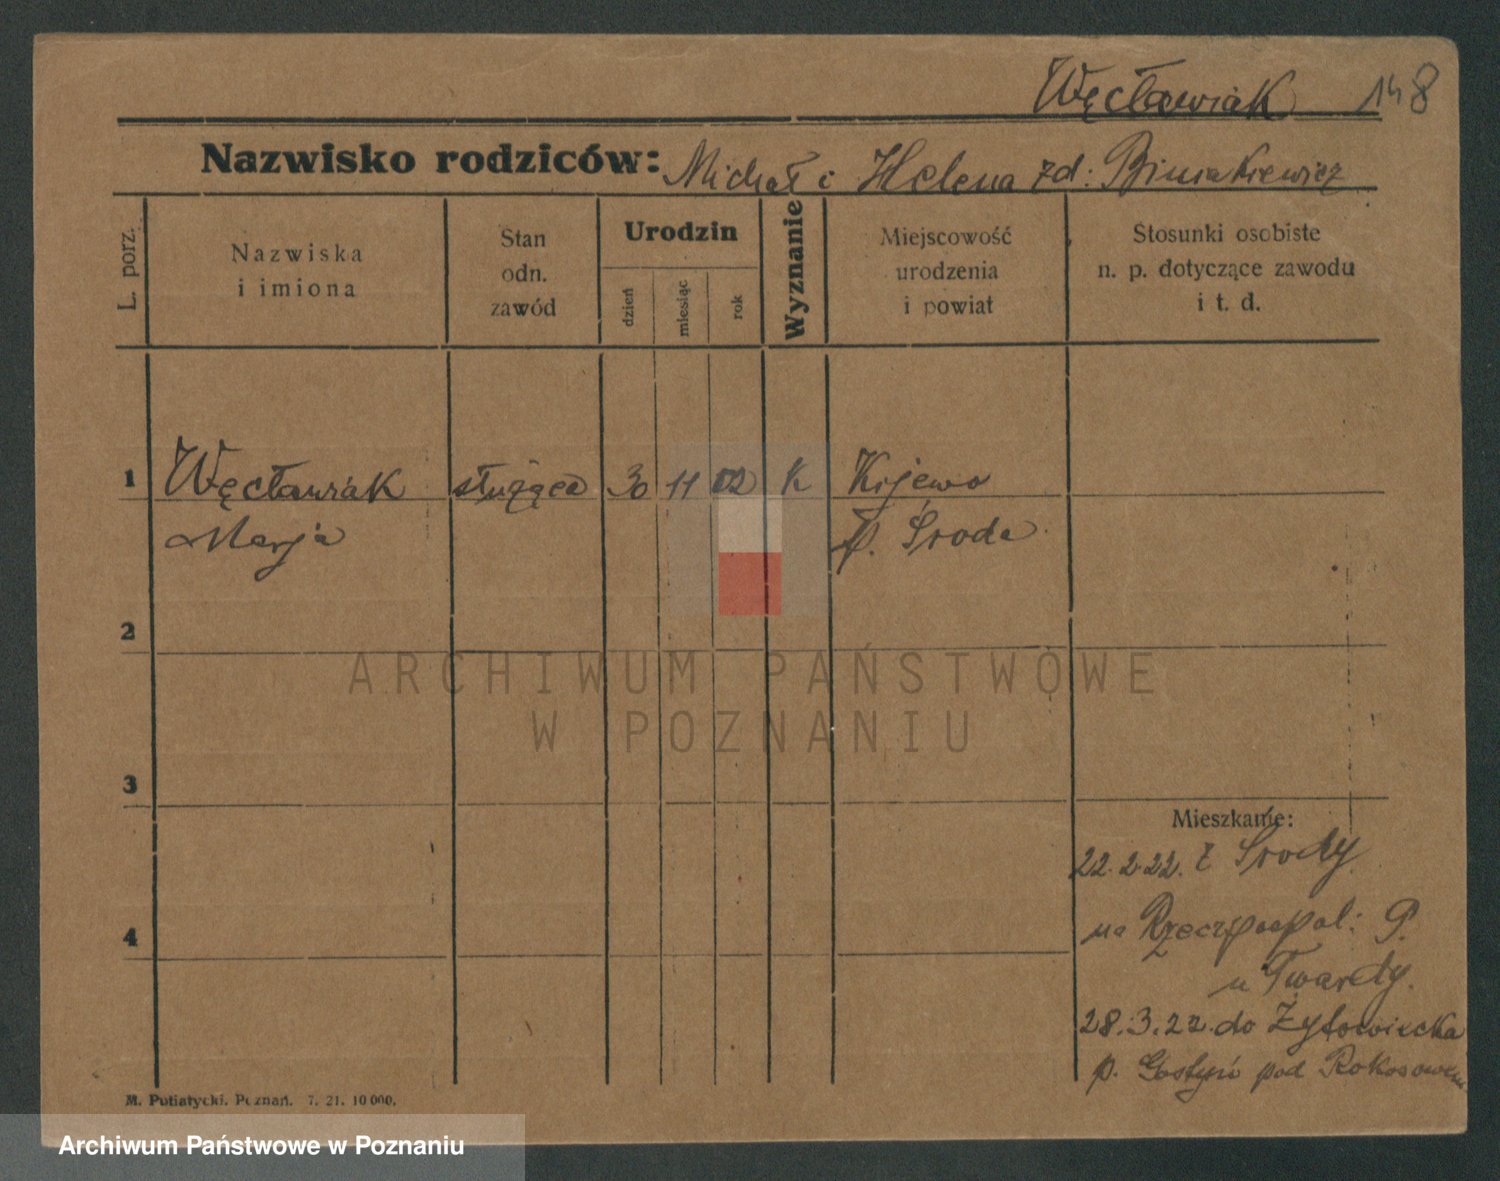 Węcławiak 148
Nazwisko rodziców: Michał i Helena zd: Biniakiewicz
L. porz.
Nazwiska
i imiona
Stan
odn.
zawód
Urodzin
dzień
miesiąc
rok
Wyznanie
Miejscowość
urodzenia
i powiat
Stosunki osobiste
n. p. dotyczące zawodu
i t. d.
1 Węcławiak służąca 30 11 02 k Kijewo
Marja p. Środa
2
ARCHIWUM PAŃSTWOWE
W POZNANIU
3
Mieszkanie:
22.2.22. z Środy
4
na Rzeczpospol: P.
u Twardy.
28.3.22. do Żytowiecka
p. Gostyń pod Rokosowem
M. Putiatycki. Poznań. 7. 21. 10 000.
Archiwum Państwowe w Poznaniu